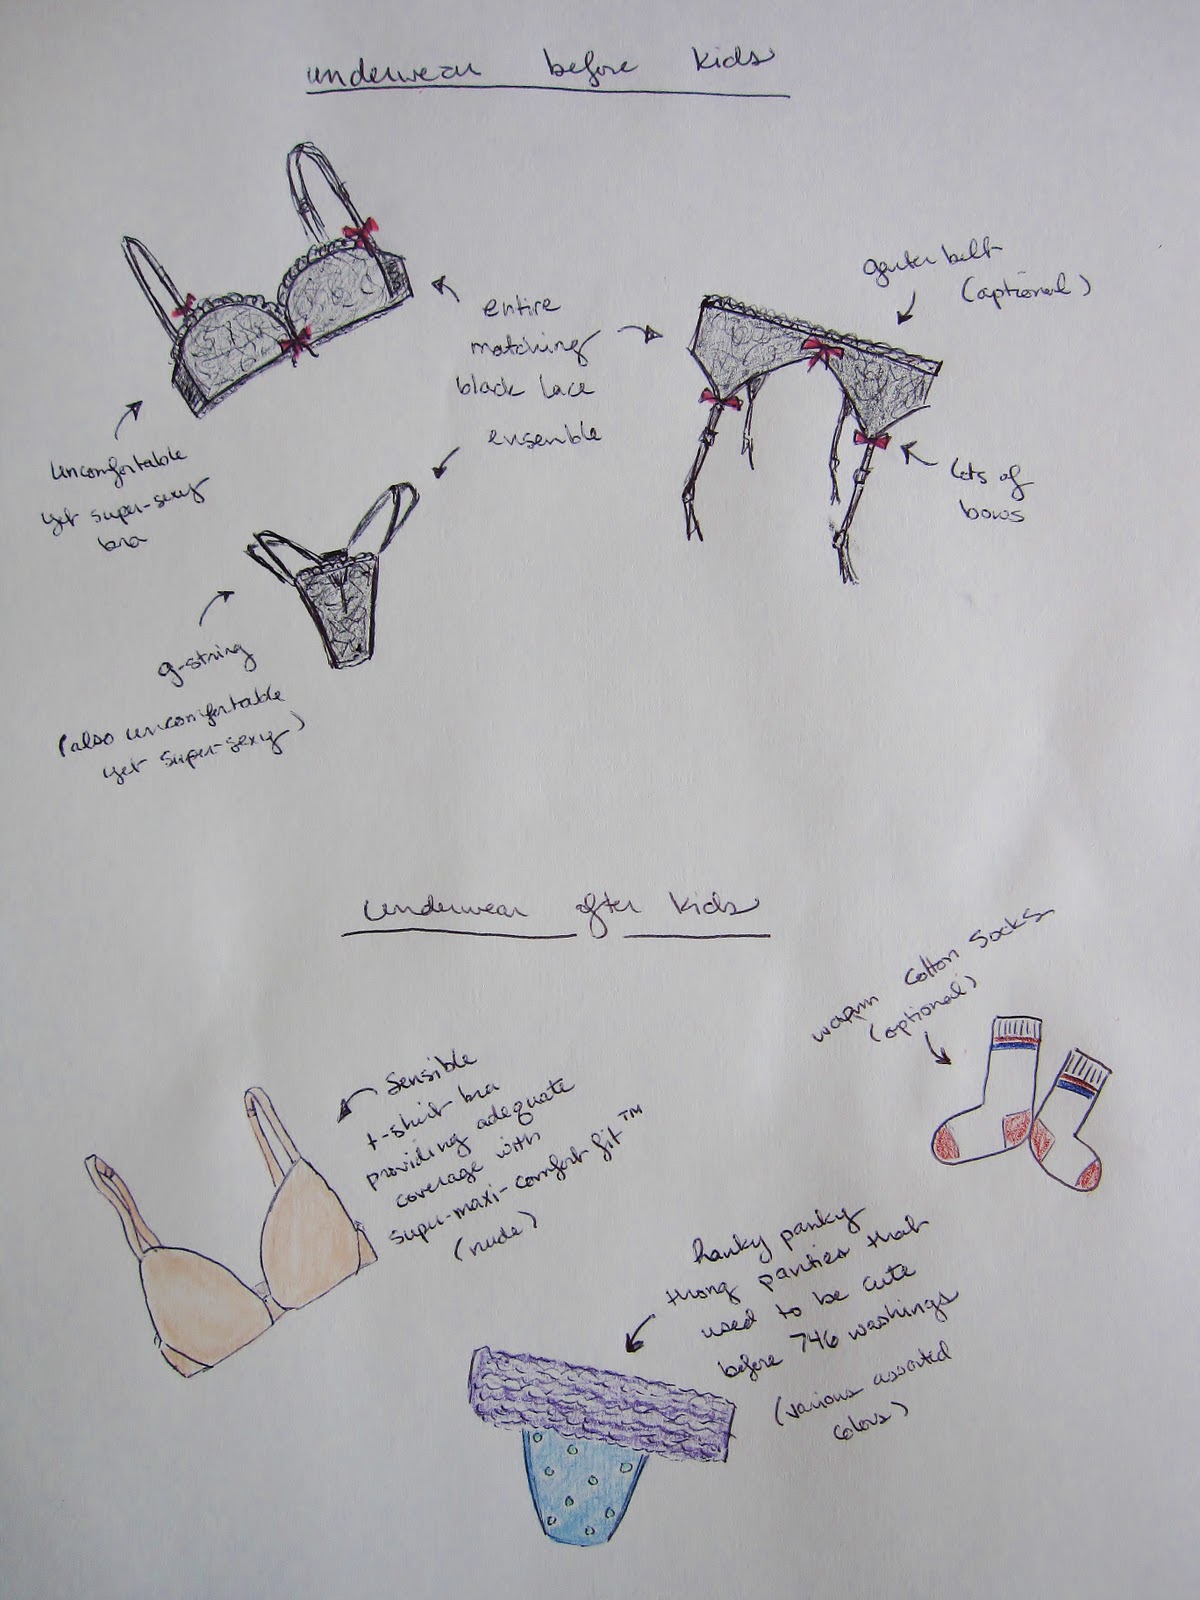 underwear before kids
garter belt
(optional)
entire
matching
black lace
ensemble
uncomfortable
yet super-sexy
bra
lots of
bows
g-string
(also uncomfortable
yet super-sexy)
underwear after kids
warm cotton socks
(optional)
sensible
t-shirt bra
providing adequate
coverage with
super-maxi-comfort fit™
(nude)
hanky panky
thong panties that
used to be cute
before 746 washings
(various assorted
colors)